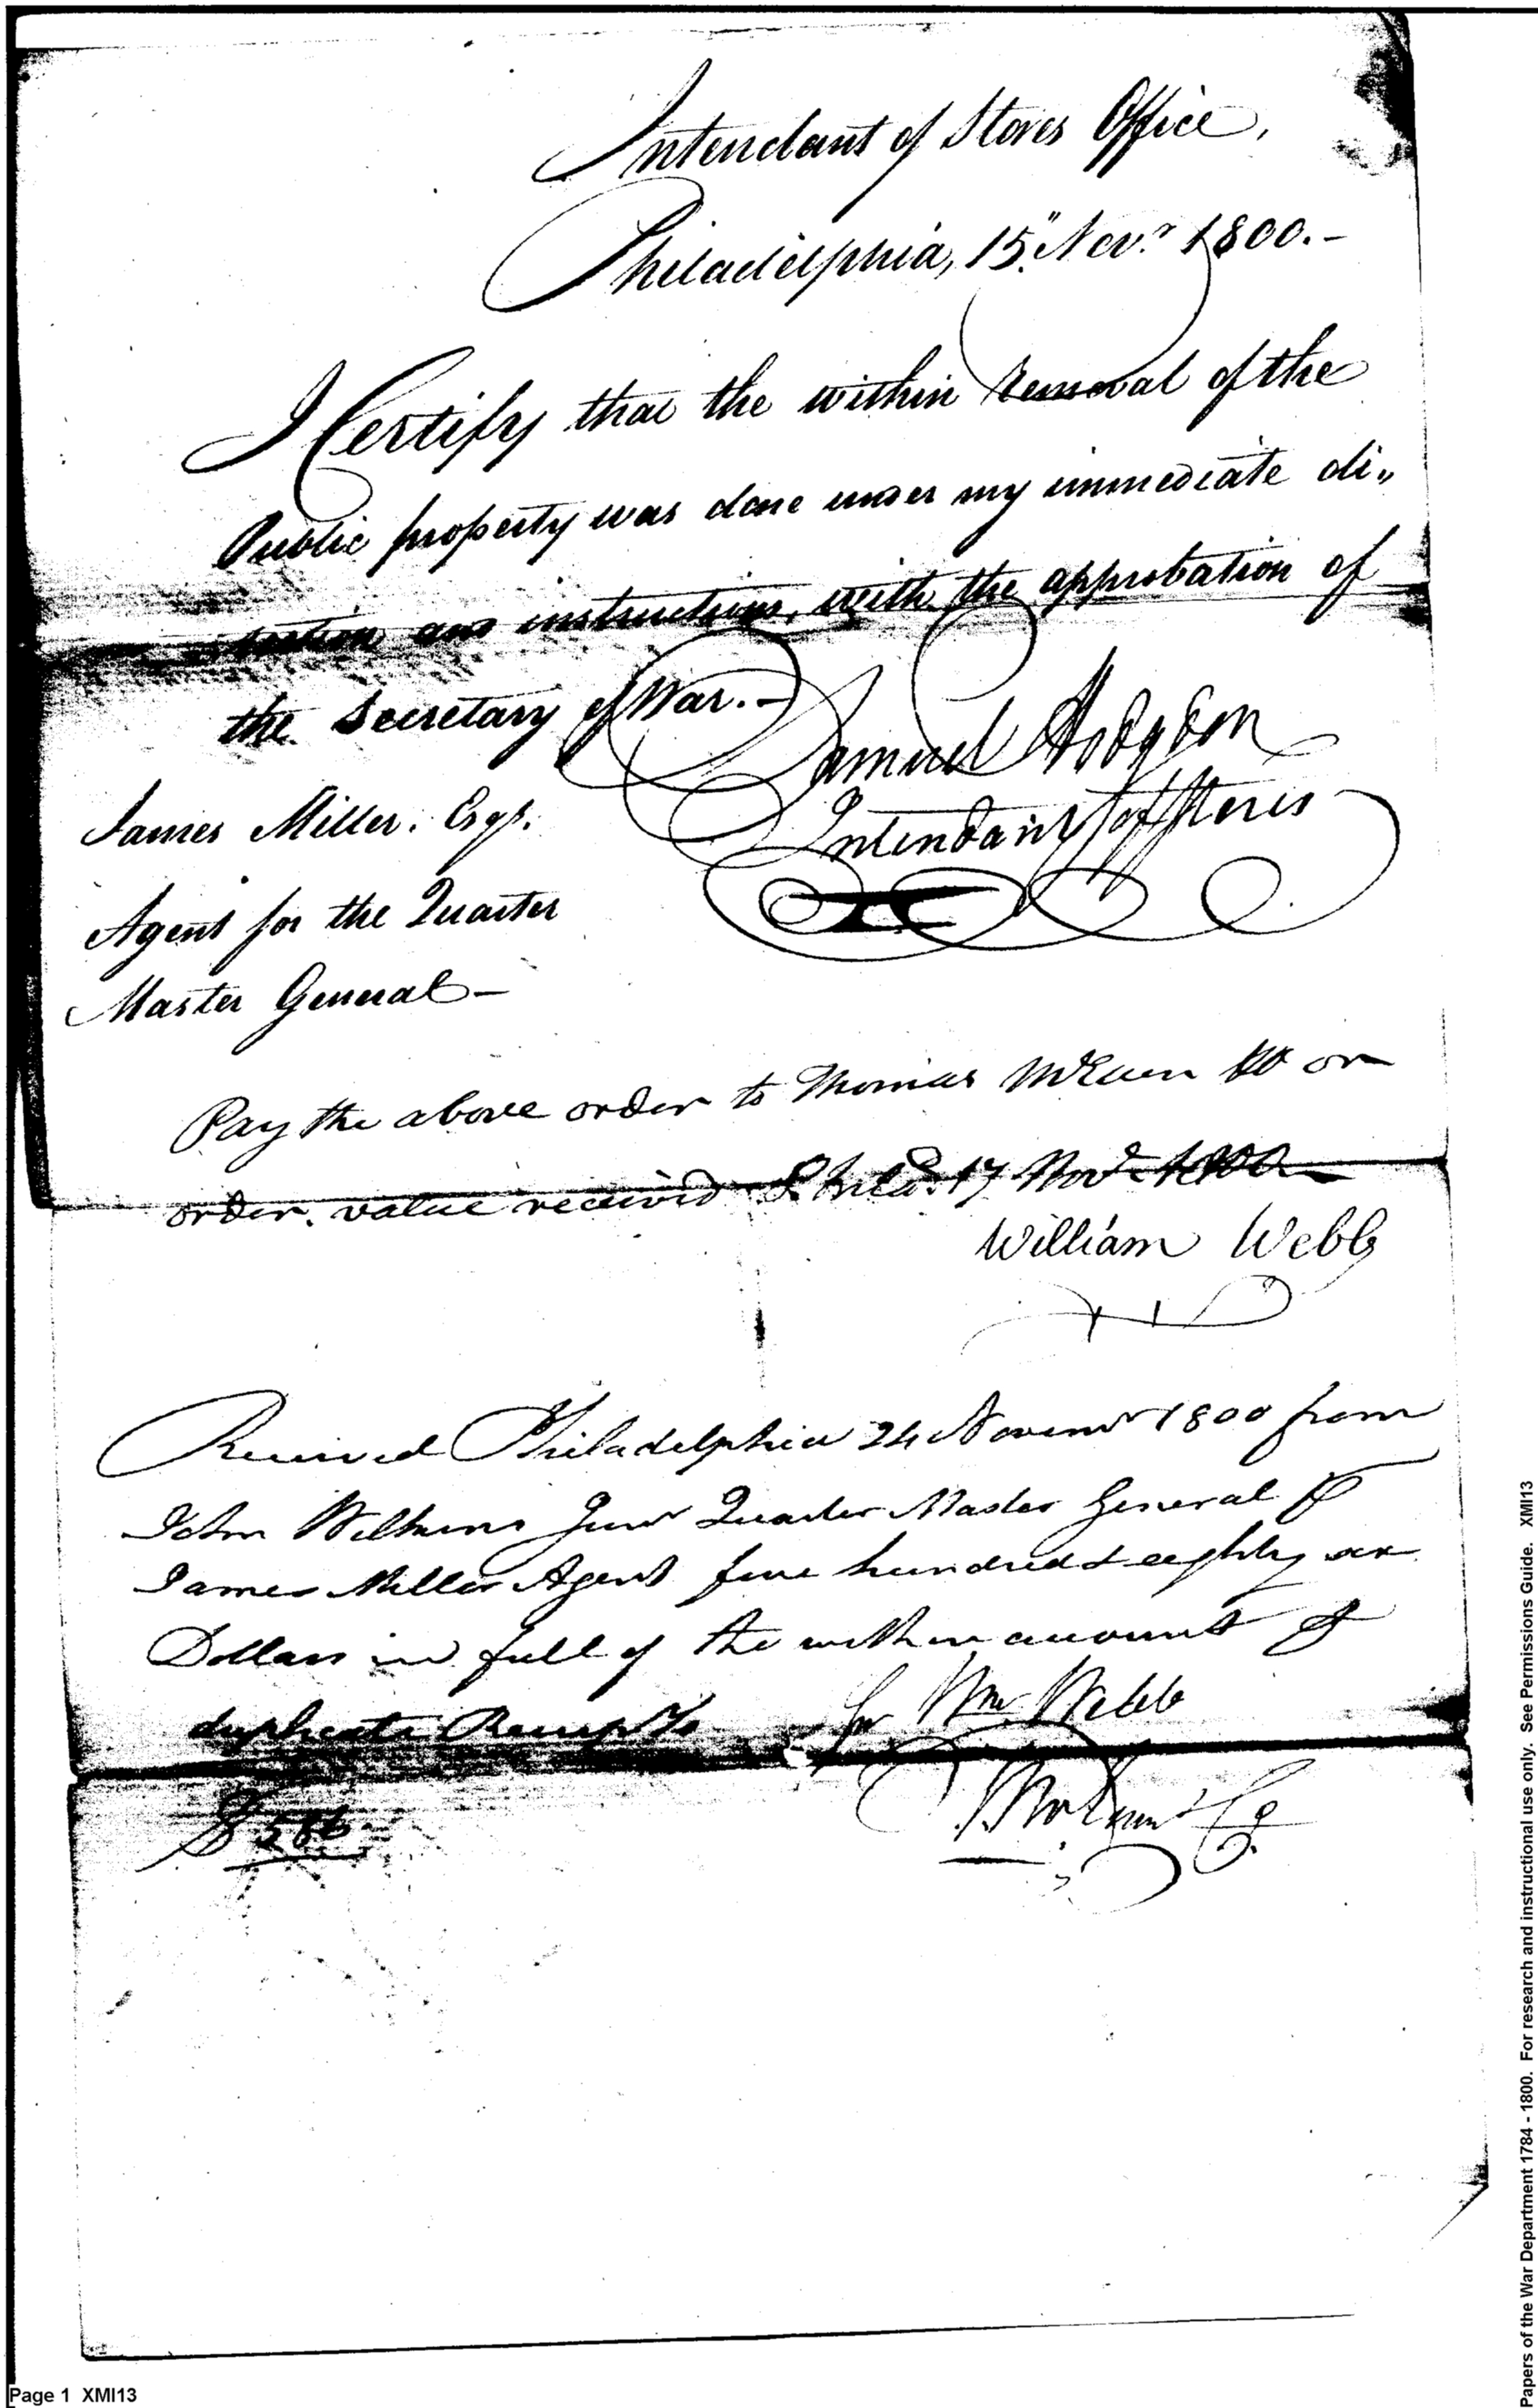 Intendant of Stores Office,
Philadelphia, 15" Novr. 1800.-
I Certify that the within Removal of the
Public property was done under my immediate di"
rection and instructions, with the approbation of
the Secretary of War.-
Samuel Hodgdon
Intendant of Stores
James Miller. Esqr.
Agent for the Quarter
Master General-
Pay the above order to Thomas McEuen & Co or
order. value received Philad. 17 Novr 1800
William Webb
Received Philadelphia 24 Novemr 1800 from
John Wilkins Junr Quarter Master General P
James Miller Agent five hundred & eighty six
Dollars in full of the within account &
duplicate Receipts
for Wm. Webb
$586
Tho McEuen & Co
Page 1 XMI13
Papers of the War Department 1784 - 1800. For research and instructional use only. See Permissions Guide. XMI13